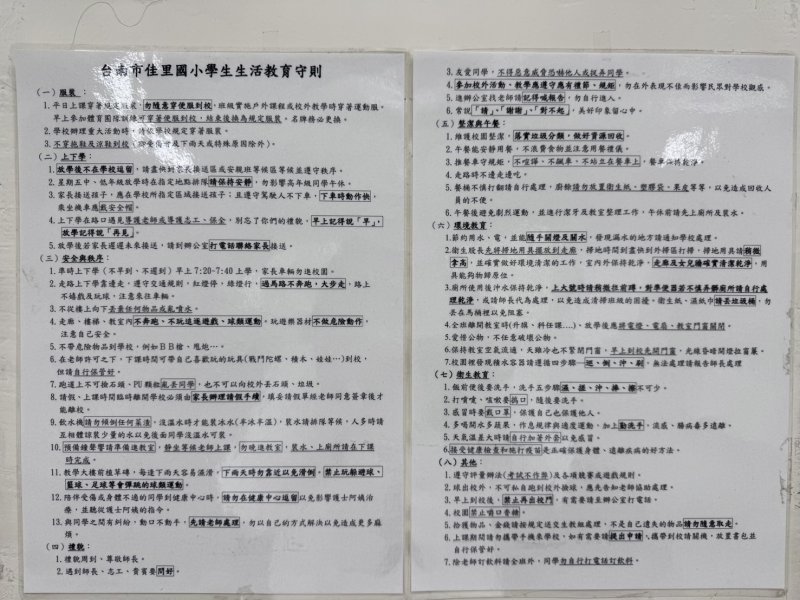 台南市佳里國小學生生活教育守則
(一)服裝：
1.平日上課穿著規定服裝，勿隨意穿便服到校，班級實施戶外課程或校外教學時穿著運動服。
早上參加體育團隊訓練可穿著便服到校，結束後換為規定服裝，名牌務必更換。
2.學校辦理重大活動時，請依學校規定穿著服裝。
3.不穿拖鞋及涼鞋到校(腳受傷者及下雨天或特殊原因除外)。
(二)上下學：
1.放學後不在學校逗留，請盡快到家長接送區或安親班等候區等候並遵守秩序。
2.星期五中、低年級放學時在指定地點排隊請保持安靜，勿影響高年級同學午休。
3.家長接送孩子，應在學校所指定區域接送孩子；且遵守駕駛人不下車，下車時動作快，
乘坐機車應戴安全帽。
4.上下學在路口遇見導護老師或導護志工、保全，別忘了你們的禮貌，早上記得說「早」，
放學記得說「再見」。
5.放學後若家長遲遲未來接送，請到辦公室打電話聯絡家長接送。
(三)安全與秩序：
1.準時上下學（不早到、不遲到）早上7:20-7:40上學，家長車輛勿進校園。
2.走路上下學靠邊走，遵守交通規則，紅燈停，綠燈行，過馬路不奔跑，大步走，路上
不嬉戲及玩球，注意來往車輛。
3.不從樓上向下丟棄任何物品或亂噴水。
4.走廊、樓梯、教室內不奔跑、不玩追逐遊戲、球類運動。玩遊樂器材不做危險動作，
注意自己安全。
5.不帶危險物品到學校，例如BB槍、甩炮…。
6.在老師許可之下，下課時間可帶自己喜歡玩的玩具(戰鬥陀螺、積木、娃娃…)到校，
但請自行保管好。
7.跑道上不可撿石頭、PU顆粒亂丟同學，也不可以向校外丟石頭、垃圾。
8.請假、上課時間臨時離開學校必須由家長辦理請假手續，填妥請假單經老師同意簽章後才
能離校。
9.飲水機請勿傾倒任何菜渣，沒溫水時才能裝冰水(半冰半溫)，裝水請排隊等候，人多時請
互相體諒裝少量的水以免後面同學沒溫水可裝。
10.預備鐘聲響請準備進教室，靜坐等候老師上課，勿晚進教室，裝水、上廁所請在下課
時完成。
11.教學大樓前植草磚，每逢下雨天容易濕滑，下雨天時勿靠近以免滑倒。禁止玩躲避球、
籃球、足球等會彈跳的球類運動。
12.陪伴受傷或身體不適的同學到健康中心時，請勿在健康中心逗留以免影響護士阿姨治
療，並聽從護士阿姨的指令。
13.與同學之間有糾紛，動口不動手，先請老師處理，勿以自己的方式解決以免造成更多麻
煩。
(四)禮貌：
1.禮貌周到、尊敬師長。
2.遇到師長、志工、貴賓要問好。
3.友愛同學，不得惡意威脅恐嚇他人或捉弄同學。
4.參加校外活動、教學應遵守應有禮節、規矩，勿在外表現不佳而影響民眾對學校觀感。
5.進辦公室找老師請記得喊報告，勿自行進入。
6.常說「請」、「謝謝」、「對不起」，美好印象留心中。
(五)整潔與午餐：
1.維護校園整潔，落實垃圾分類，做好資源回收。
2.午餐能安靜用餐，不浪費食物並注意用餐禮儀。
3.推餐車守規矩，不喧嘩、不飆車、不站立在餐車上，餐車保持乾淨。
4.走路時不邊走邊吃。
5.餐桶不慎打翻請自行處理，廚餘請勿放置衛生紙、塑膠袋、果皮等等，以免造成回收人
員的不便。
6.午餐後避免劇烈運動，並進行潔牙及教室整理工作，午休前請先上廁所及裝水。
(六)環境教育：
1.節約用水、電，並能隨手關燈及關水，發現漏水的地方請通知學校處理。
2.衛生股長先將掃地用具擺放到走廊，掃地時間到盡快到外掃區打掃，掃地用具請稍微
拿高，並確實做好環境清潔的工作，室內外保持乾淨，走廊及女兒牆確實清潔乾淨，用
具能夠物歸原位。
3.廁所使用後沖水保持乾淨，上大號時請稍微往前蹲，對準便器若不慎弄髒廁所請自行處
理乾淨，或請師長代為處理，以免造成清掃班級的困擾。衛生紙、濕紙巾請丟垃圾桶，勿
丟在馬桶裡以免阻塞。
4.全班離開教室時(升旗、科任課....)、放學後應將電燈、電扇、教室門窗關閉。
5.愛惜公物，不任意破壞公物。
6.保持教室空氣流通，天雖冷也不緊閉門窗，早上到校先開門窗，光線昏暗開燈拉窗簾。
7.校園裡發現積水容器請遵循四步驟—巡、倒、沖、刷，無法處理請報告師長處理
(七)衛生教育：
1.飯前便後要洗手，洗手五步驟濕、搓、沖、捧、擦不可少。
2.打噴嚏、咳嗽要摀口，隨後要洗手。
3.感冒時要戴口罩，保護自己也保護他人。
4.多喝開水多蔬果，作息規律與適度運動，加上勤洗手，流感、腸病毒多遠離。
5.天氣溫差大時請自行加著外套以免感冒。
6.接受健康檢查和施打疫苗是正確保護身體、遠離疾病的好方法。
(八)其他：
1.遵守評量辦法(考試不作弊)及各項競賽或遊戲規則。
2.球出校外，不可私自跑到校外撿球，應先告知老師協助處理。
3.早上到校後，禁止再出校門，有需要請至辦公室打電話。
4.校園禁止嚼口香糖。
5.拾獲物品、金錢請按規定送交生教組處理、不是自己遺失的物品請勿隨意取走。
6.上課期間請勿攜帶手機來學校，如有需要請提出申請，攜帶到校請關機，放置書包並
自行保管好。
7.除老師訂飲料請全班外，同學勿自行打電話訂飲料。